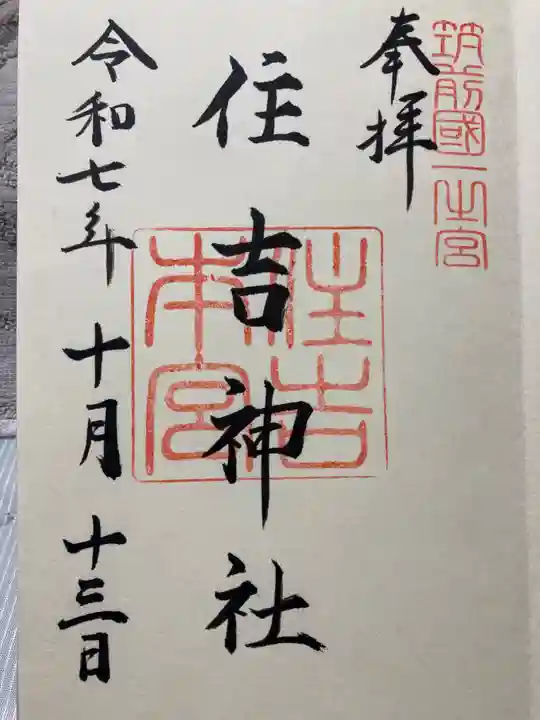 筑前國一之宮
奉拝
住吉神社
住吉
本宮
令和七年十月十三日